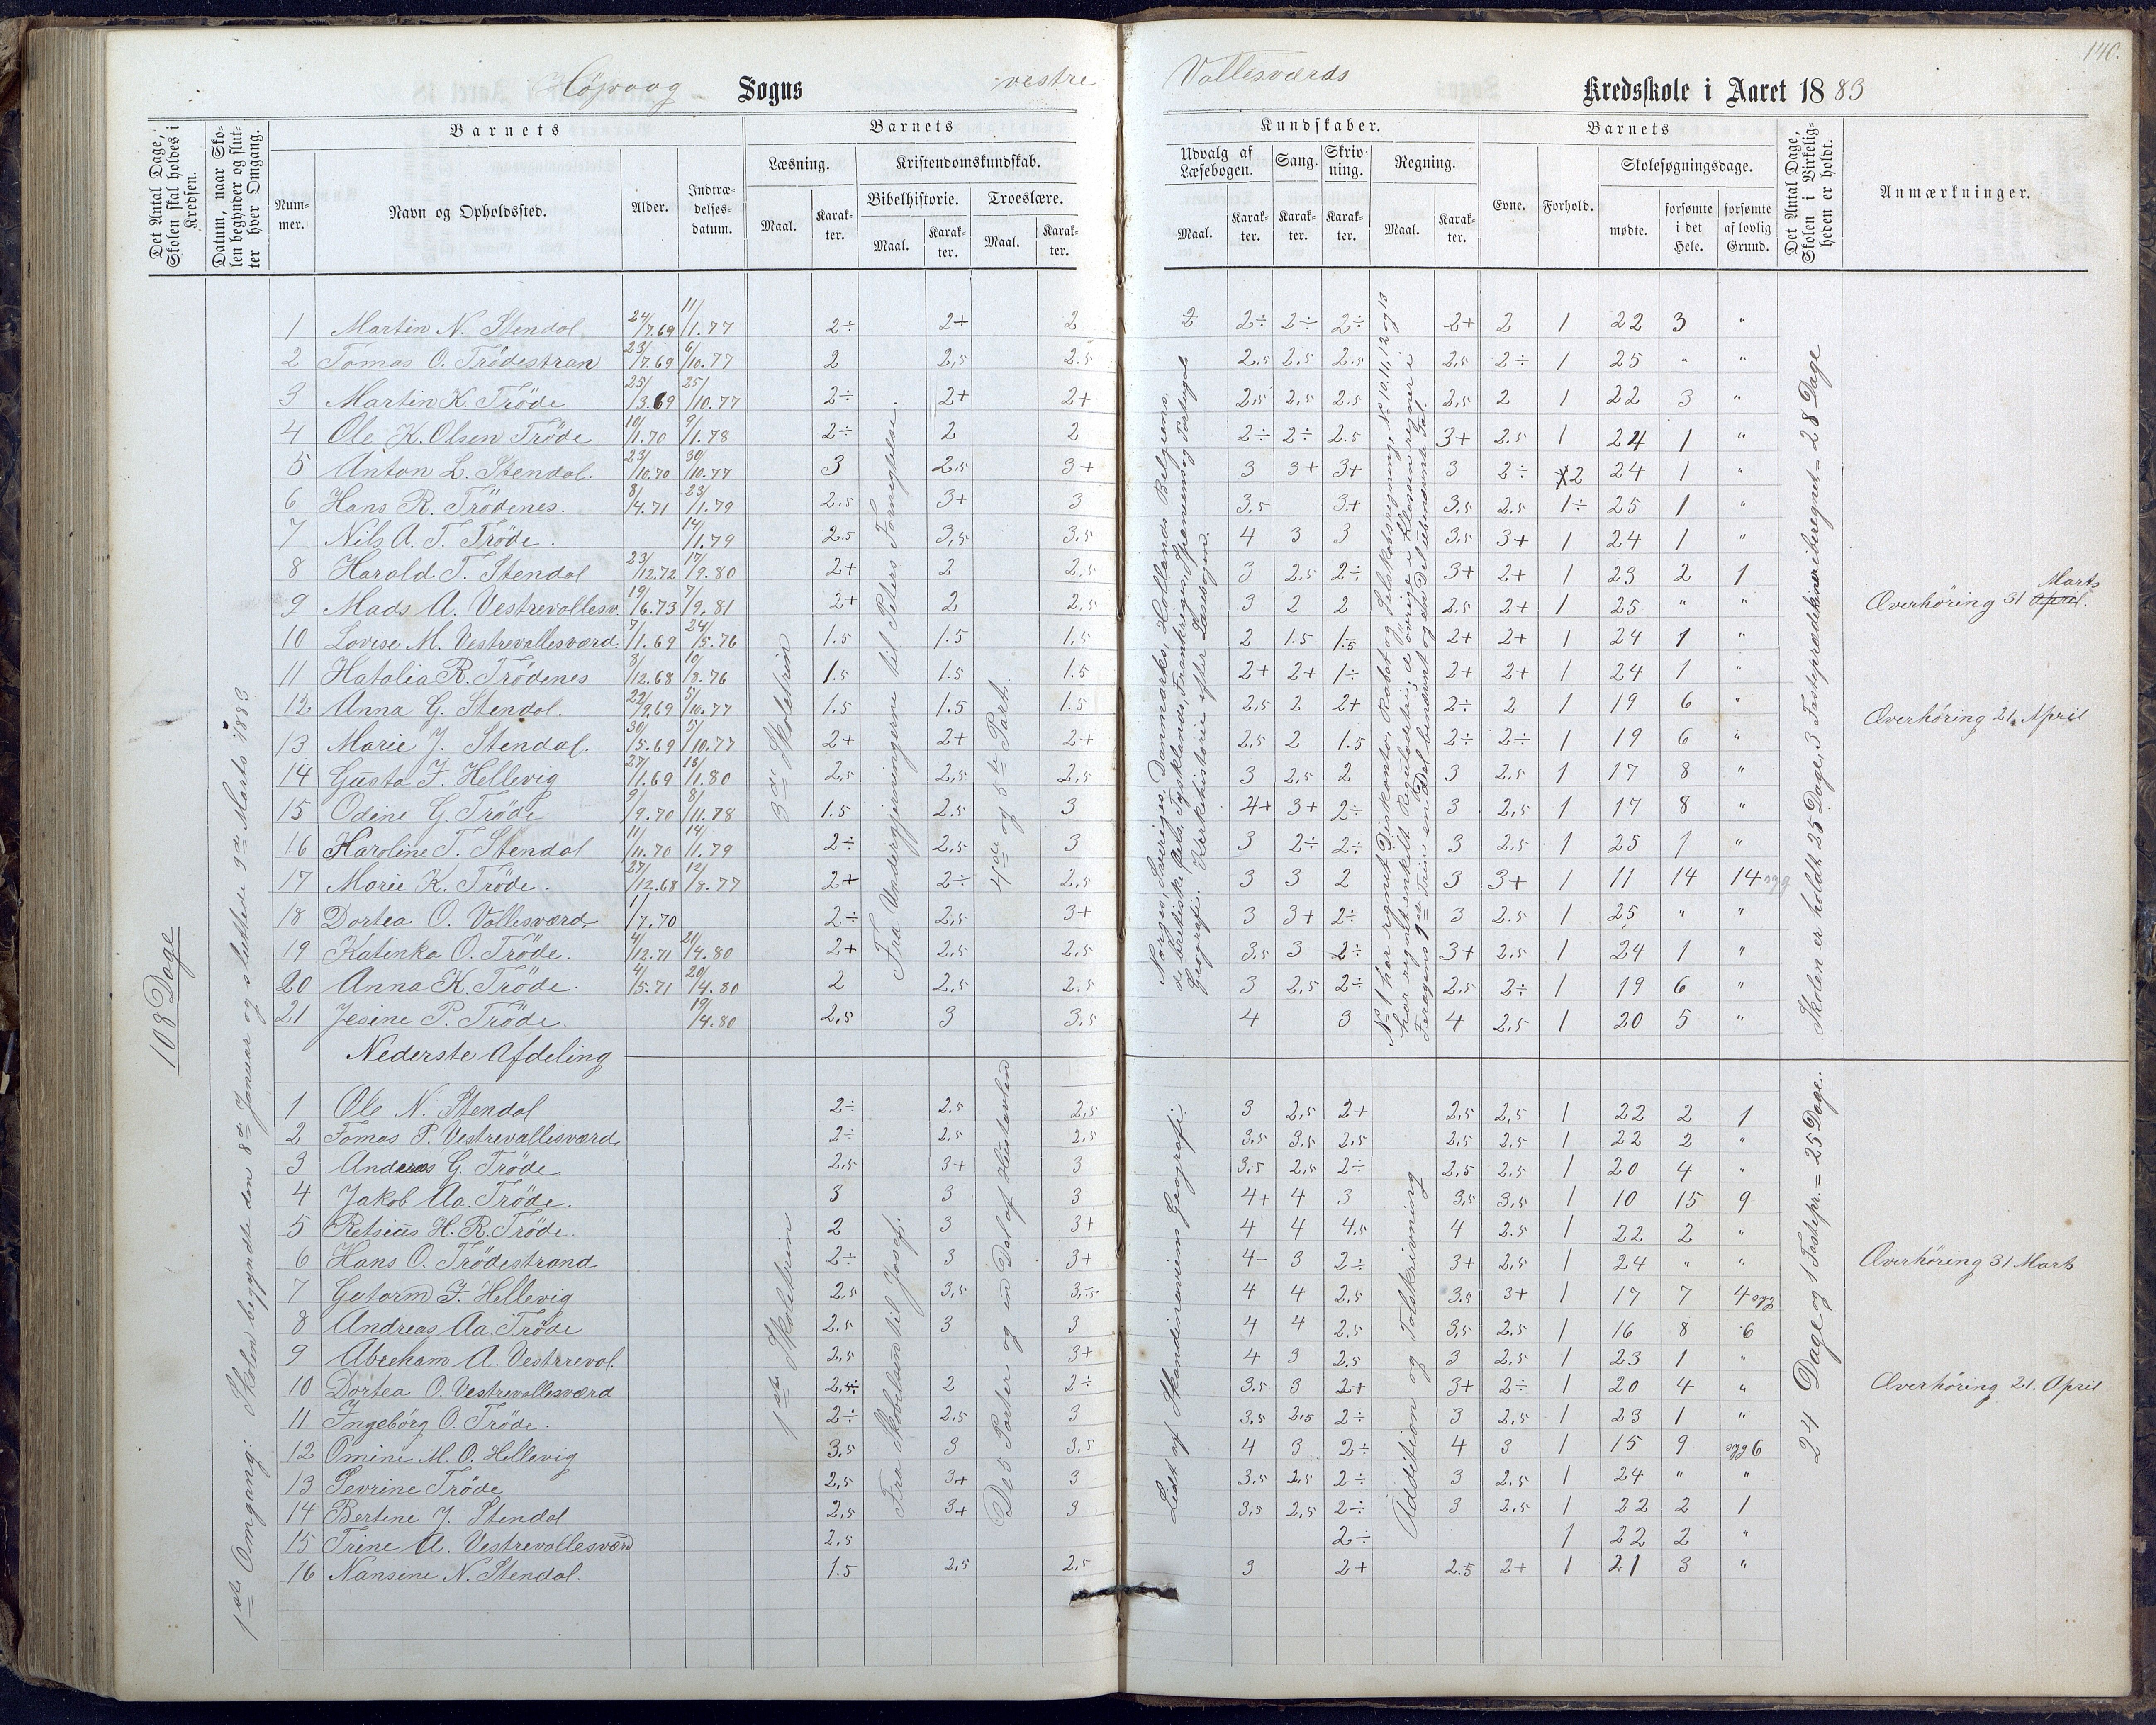 140.
Höjvaag Sogns vestre Vallesværds Kredsskole i Aaret 1883
Det Antal Dage, Skolen skal holdes i Kredsen.
Datum, naar Skolen begynder og slutter hver Omgang.
Barnets
Nummer.
Navn og Opholdssted.
Alder.
Indtrædelsesdatum.
Barnets
Læsning.
Maal.
Karakter.
Kristendomskundskab.
Bibelhistorie.
Maal.
Karakter.
Troeslære.
Maal.
Karakter.
Kundskaber.
Udvalg af Læsebogen.
Maal.
Karakter.
Sang.
Karakter.
Skrivning.
Karakter.
Regning.
Maal.
Karakter.
Barnets
Evne.
Forhold.
Skolesøgningsdage.
mødte.
forsømte i det Hele.
forsømte af lovlig Grund.
Det Antal Dage, Skolen i Virkeligheden er holdt.
Anmærkninger.
108 Dage
1ste Omgang: Skolen begyndte den 8de Januar og sluttede 9de Marts 1883
3die Skoletrin
Fra Undergjerningerne til Peters Fornegtelse.
4de og 5te Part.
Norges, Sveriges, Danmarks, Hollands, Belgiens,
de brittiske Øers, Tysklands, Frankriges, Spaniens og Portugals
Geografi. Kirkehistorie efter Læsebogen.
No 1 har regnet Diskonto, Rabat og Selskabsregning, No 10, 11, 12 og 13
har regnet enkelt Reguladetri, d øvrige i Klassen regner i
Skolen er holdt 25 Dage, 3 Fasteprædikener iberegnet = 28 Dage
1 Martin N. Stendal 24/7.69 11/1.77 2÷ 2+ 2 2 2÷ 2÷ 2÷ 2+ 2 1 22 3 "
2 Tomas O. Trödestran 23/7.69 6/10.77 2 2,5 2.5 2.5 2.5 2.5 2,5 2÷ 1 25 " "
3 Martin K. Tröde 25/3.69 25/10.77 2÷ 2+ 2+ 2,5 2,5 2.5 2,5 2 1 22 3 "
4 Ole K. Olsen Tröde 10/1.70 9/1.78 2÷ 2 2 2÷ 2÷ 2.5 3+ 2.5 1 24 1 "
5 Anton L. Stendal. 23/10.70 30/10.77 3 2,5 3+ 3 3+ 3+ 3 2÷ 2 24 1 "
6 Hans R. Trödenes. 8/4.71 23/1.79 2.5 3+ 3 3.5 3+ 3,5 2.5 1÷ 25 1 "
7 Nils A. T. Tröde. 14/1.79 2.5 3,5 3.5 4 3 3 3,5 3+ 1 24 1 "
8 Harald. T. Stendal 23/12.72 17/9.80 2+ 2 2,5 3 2.5 2÷ 3+ 2+ 1 23 2 1
9 Mads A. Vestrevallesv. 19/6.73 7/9.81 2+ 2 2,5 3 2 2 2,5 2+ 1 25 " " Overhöring 31 Marts April.
10 Lovise M. Vestrevallesværd. 7/1.69 24/5.76 1.5 1.5 1.5 2 1.5 1.5 2+ 2+ 1 24 1 "
11 Hatalia R. Trödenes 8/12.68 10/8.76 1.5 1.5 1.5 2+ 2+ 1÷ 2+ 2+ 1 24 1 "
12 Anna G. Stendal. 22/9.69 5/10.77 1.5 1.5 1.5 2,5 2 2+ 2÷ 2 1 19 6 " Overhöring 21. April
13 Marie J. Stendal. 30/5.69 5/10.77 2+ 2+ 2+ 2,5 2 1.5 2÷ 2÷ 1 19 6 "
14 Gusta F. Hellevig 27/1.69 18/1.80 2,5 2,5 2,5 3 2,5 2 3 2.5 1 17 8 "
15 Odine G. Tröde 9/9.70 8/11.78 1.5 2.5 3 4+ 3+ 2÷ 3 2,5 1 17 8 "
16 Karoline T. Stendal 11/11.70 14/1.79 2÷ 2,5 3 3 2÷ 2÷ 3 2.5 1 25 1 "
17 Marie K. Tröde. 27/12.68 12/8.77 2+ 2÷ 2,5 3 3 2 3 3+ 1 11 14 14 syg
18 Dortea O. Vallesværd 1/7.70 2÷ 2,5 3+ 3 3+ 2÷ 3 2.5 1 25 " "
19 Katinka O. Tröde. 4/12.71 21/4.80 2+ 2,5 2,5 3.5 3 2÷ 3+ 2.5 1 24 1 "
20 Anna K. Tröde. 4/5.71 20/4.80 2 2,5 2.5 3 2,5 2÷ 2,5 2÷ 1 19 6 "
21 Jesine P. Tröde. 19/4.80 2,5 3 3,5 4 3 4 2,5 1 20 5 "
Nederste Afdeling
1ste Skoletrin
Fra Skabelsen til Josef.
De 5 Parter og en Del af Hustavlen
Lidt af Skandinaviens Geografi
Addition og Talskrivning
24 Dage og 1 Fastepr. = 25 Dage.
1 Ole N. Stendal 2÷ 2.5 2,5 3 2,5 2+ 2,5 2,5 1 22 2 1
2 Tomas P. Vestrevallesværd 2÷ 2,5 2,5 3.5 3,5 2,5 2,5 2.5 1 22 2 "
3 Andreas G. Tröde 2,5 3+ 3 3,5 2,5 2÷ 2,5 2.5 1 20 4 "
4 Jakob Aa. Tröde. 3 3 3 4+ 4 3 3,5 3,5 1 10 15 9
5 Retsius H. R. Tröde. 2 3 3+ 4 4 4.5 4 2.5 1 22 2 "
6 Hans O. Trödestrand 2÷ 3 3+ 4- 3 2÷ 3+ 2,5 1 24 " " Overhöring 31 Marts
7 Gutorm F. Hellevig 2.5 3,5 3,5 4 4 2,5 3.5 3+ 1 17 7 4 syg
8 Andreas Aa. Tröde 2.5 3 3 4 4 2.5 3,5 2.5 1 16 8 6
9 Abraham A. Vestrreval. 2,5 3+ 4 3 2,5 3 2,5 1 23 1 "
10 Dortea O. Vestrevallesværd 2÷ 2 2÷ 3.5 3 2+ 3+ 2÷ 1 20 4 " Overhöring 21. April
11 Ingebörg O. Tröde. 2÷ 2,5 3 3,5 2,5 2÷ 3 2,5 1 23 1 "
12 Omine M. O. Hellevig 3.5 3 3,5 4 3 2÷ 4 3 1 15 9 syg 6
13 Sevrine Tröde 2,5 3+ 3 3.5 2,5 2÷ 3 2.5 1 24 " "
14 Bertine J. Stendal 2,5 3+ 3 3,5 2,5 2÷ 3 2.5 1 22 2 1
15 Trine A. Vestrevallesværd 2,5 2÷ 1 22 2 "
16 Nansine N. Stendal. 1.5 2,5 2,5 3 2+ 2.5 2+ 1 21 3 "